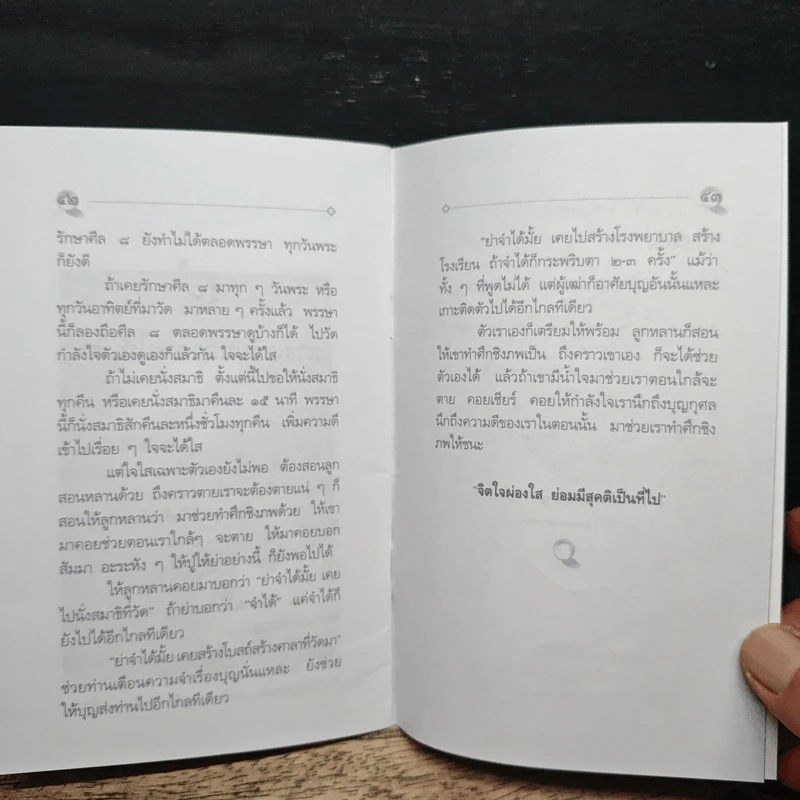 ๔๒
รักษาศีล ๘ ยังทำไม่ได้ตลอดพรรษา ทุกวันพระ
ก็ยังดี
ถ้าเคยรักษาศีล ๘ มาทุก ๆ วันพระ หรือ
ทุกวันอาทิตย์ที่มาวัด มาหลาย ๆ ครั้งแล้ว พรรษา
นี้ก็ลองถือศีล ๘ ตลอดพรรษาดูบ้างก็ได้ ไปวัด
กำลังใจตัวเองดูเองก็แล้วกัน ใจจะได้ใส
ถ้าไม่เคยนั่งสมาธิ ตั้งแต่นี้ไปขอให้นั่งสมาธิ
ทุกคืน หรือเคยนั่งสมาธิมาคืนละ ๑๕ นาที พรรษา
นี้ก็นั่งสมาธิสักคืนละหนึ่งชั่วโมงทุกคืน เพิ่มความดี
เข้าไปเรื่อย ๆ ใจจะได้ใส
แต่ใจใสเฉพาะตัวเองยังไม่พอ ต้องสอนลูก
สอนหลานด้วย ถึงคราวตายเราจะต้องตายแน่ ๆ ก็
สอนให้ลูกหลานว่า มาช่วยทำศึกชิงภพด้วย ให้เขา
มาคอยช่วยตอนเราใกล้ๆ จะตาย ให้มาคอยบอก
สัมมา อะระหัง ๆ ให้ปู่ให้ย่าอย่างนี้ ก็ยังพอไปได้
ให้ลูกหลานคอยมาบอกว่า "ย่าจำได้มั้ย เคย
ไปนั่งสมาธิที่วัด" ถ้าย่าบอกว่า "จำได้" แค่จำได้ก็
ยังไปได้อีกไกลทีเดียว
"ย่าจำได้มั้ย เคยสร้างโบสถ์สร้างศาลาที่วัดมา"
ช่วยท่านเตือนความจำเรื่องบุญนั่นแหละ ยังช่วย
ให้บุญส่งท่านไปอีกไกลทีเดียว
๔๓
"ย่าจำได้มั้ย เคยไปสร้างโรงพยาบาล สร้าง
โรงเรียน ถ้าจำได้ก็กระพริบตา ๒-๓ ครั้ง" แม้ว่า
ทั้ง ๆ ที่พูดไม่ได้ แต่ผู้เฒ่าก็อาศัยบุญอันนั้นแหละ
เกาะติดตัวไปได้อีกไกลทีเดียว
ตัวเราเองก็เตรียมให้พร้อม ลูกหลานก็สอน
ให้เขาทำศึกชิงภพเป็น ถึงคราวเขาเอง ก็จะได้ช่วย
ตัวเองได้ แล้วถ้าเขามีน้ำใจมาช่วยเราตอนใกล้จะ
ตาย คอยเชียร์ คอยให้กำลังใจเรานึกถึงบุญกุศล
นึกถึงความดีของเราในตอนนั้น มาช่วยเราทำศึกชิง
ภพให้ชนะ
"จิตใจผ่องใส ย่อมมีสุคติเป็นที่ไป"